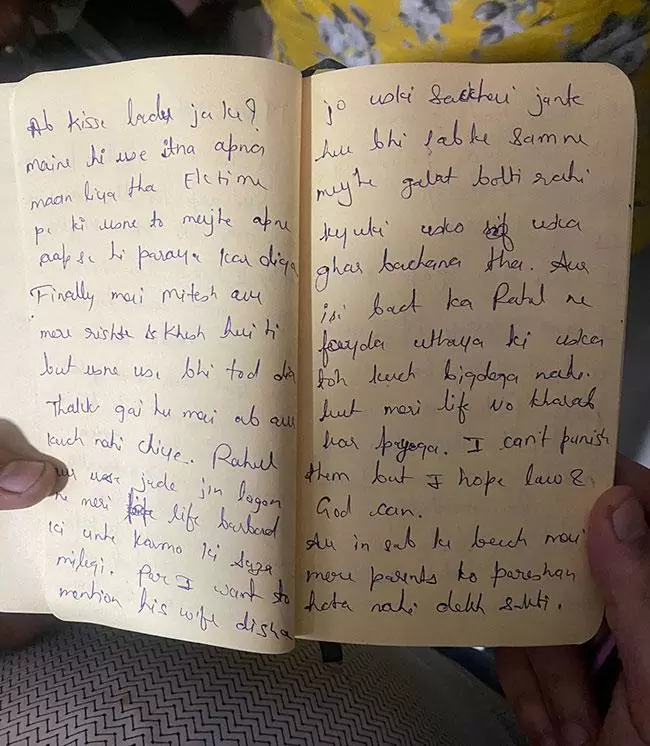 Ab kisse ladu ja ke?
maine hi use itna apna
maan liya tha Ek time
pe ki usne to mujhe apne
aap se hi paraya kar diya
Finally mai Mitesh aur
mere rishte se khush hui thi
but usne use bhi tod dia
Thakk gai hu mai ab aur
kuch nahi chiye.. Rahul
aur usse jude jin logon
ne meri life barbad
ki unke karmo ki saza
milegi. Par I want to
mention his wife disha
jo uski sachchai jante
hue bhi sab ke samne
mujhe galat bolti rahi
kyuki usko sif uska
ghar bachana tha. Aur
isi baat ka Rahul ne
fayda uthaya ki uska
toh kuch bigdega nahi.
but meri life vo kharab
kar payega. I can't punish
them but I hope law &
God can.
Aur in sab ke beech mai
mere parents ko pareshan
hota nahi dekh sakti.